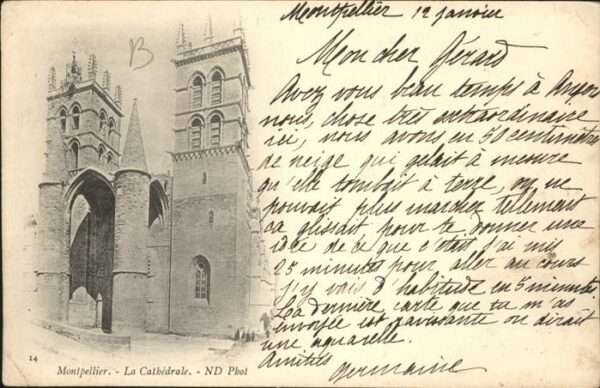 Montpellier 12 janvier
B
Mon cher Gérard
Avez vous beau temps à Angers
nous, chose très extraordinaire
ici, nous avons eu 50 centimètres
de neige qui gelait à mesure
qu'elle tombait à terre, on ne
pouvait plus marcher tellement
ca glissait pour te donner une
idée de ce que c'était j'ai mis
25 minutes pour aller au cours
j'y vais d'habitude en 5 minutes
La dernière carte que tu m'as
envoyée est ravissante on dirait
une aquarelle.
Amitiés
Germaine
14
Montpellier. - La Cathédrale. - ND Phot